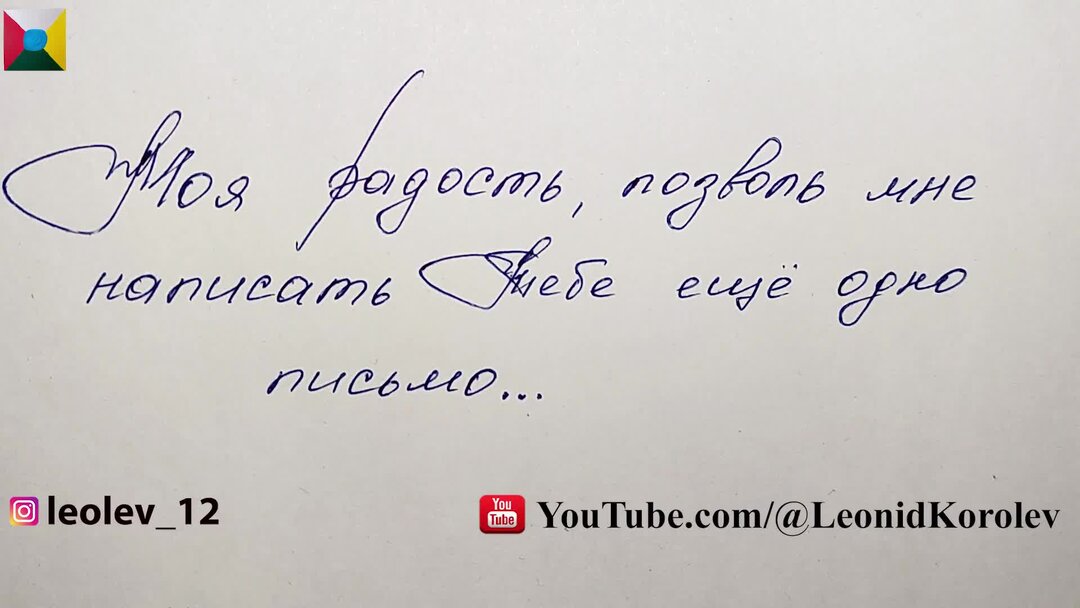 Моя радость, позволь мне
написать Тебе ещё одно
письмо...
leolev_12
You Tube YouTube.com/@LeonidKorolev